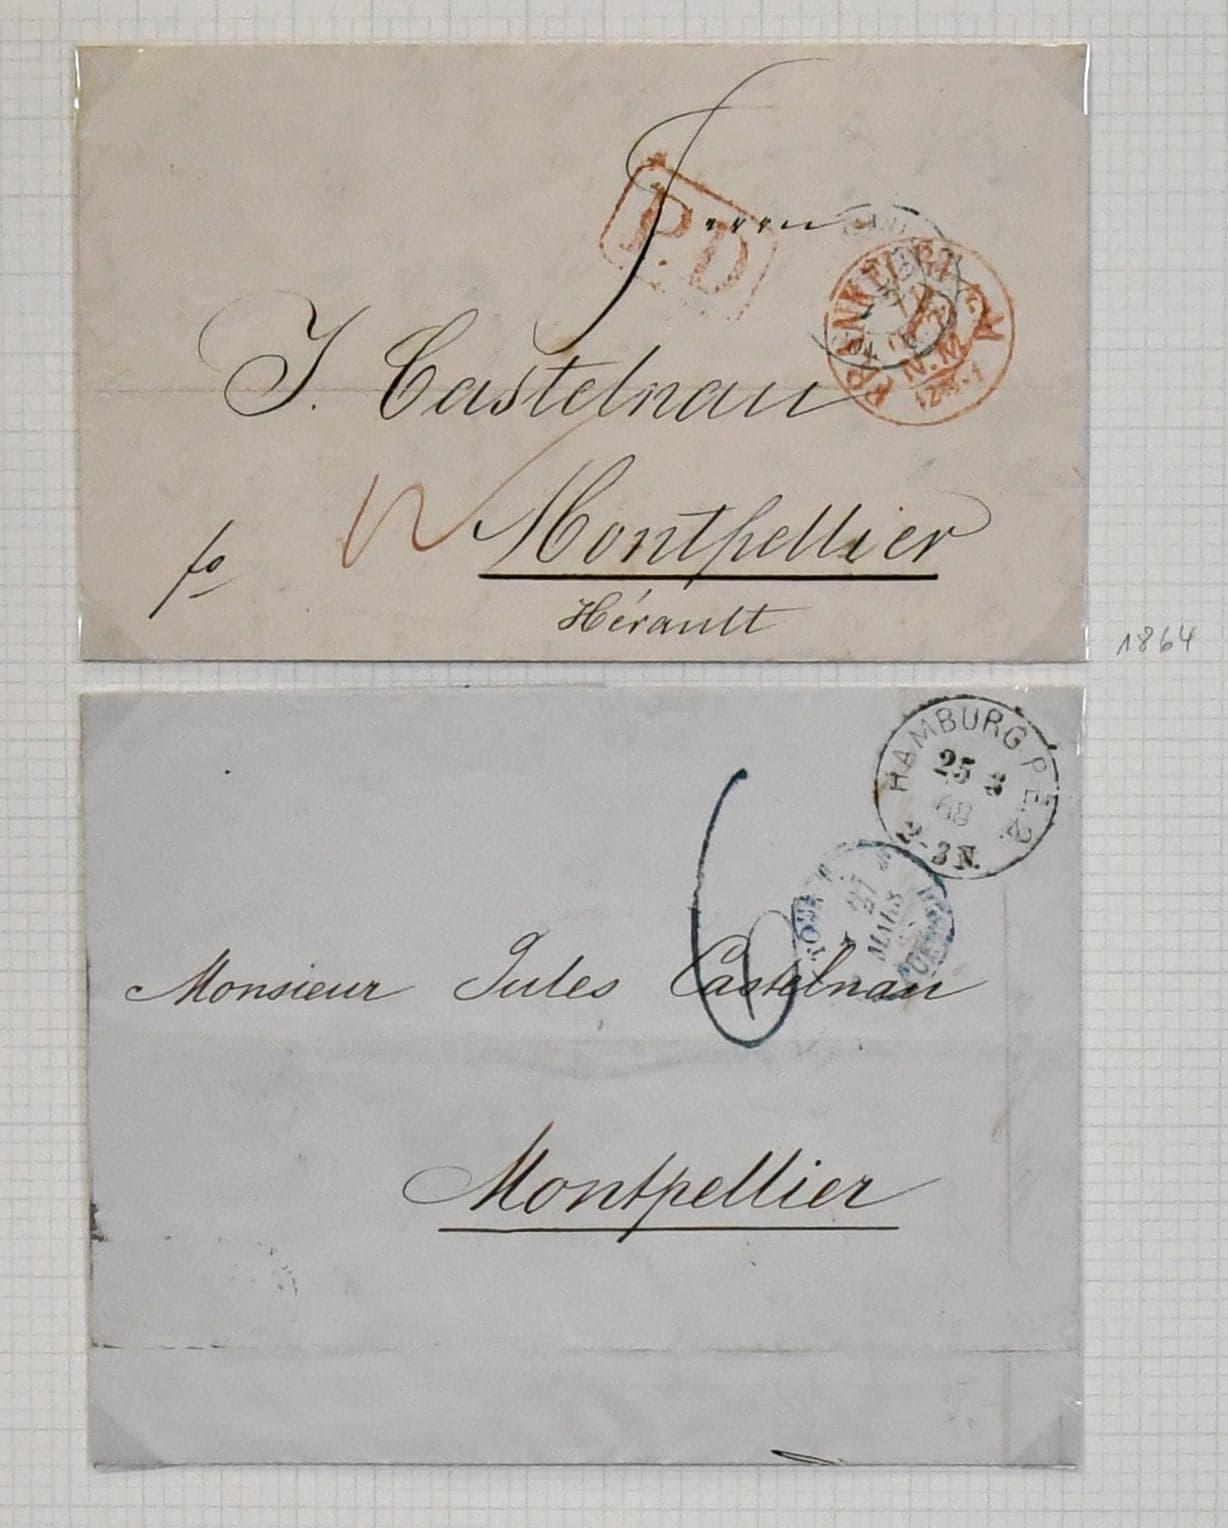 P.D
Herrn
FRANKFURT A.
N.M.
12M-1
J. Castelnau
Montpellier
fo
Hérault
1864
HAMBURG P.E.2.
25 3
68
2-3N.
27
MARS
Monsieur Jules Castelnau
6
Montpellier